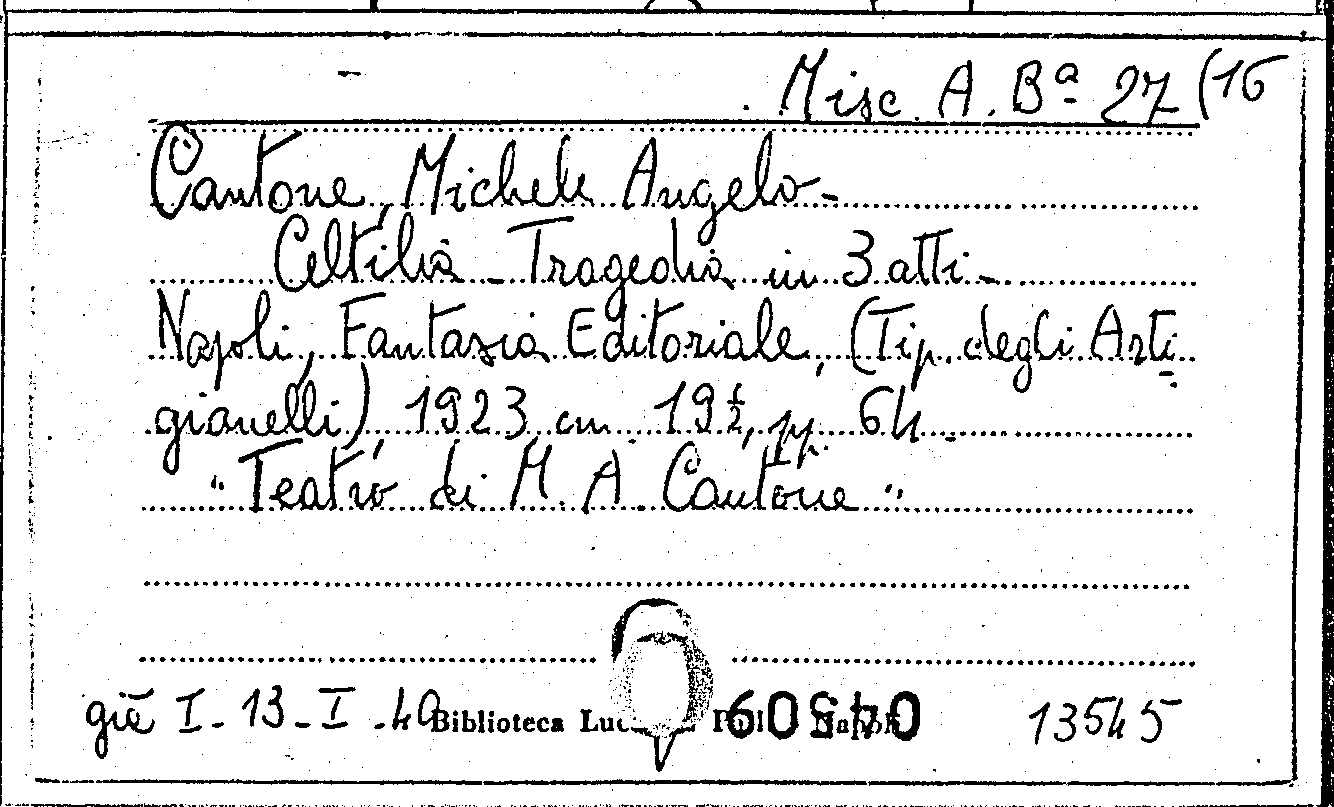 Misc. A. Bª 27 (16
Cantone, Michele Angelo -
Celtilia - Tragedia in 3 atti -
Napoli, Fantasia Editoriale, (Tip. degli Arti
gianelli), 1923, cm. 19½, pp. 64 -
"Teatro di M. A. Cantone"
già I - 13 - I - 40 Biblioteca 13545